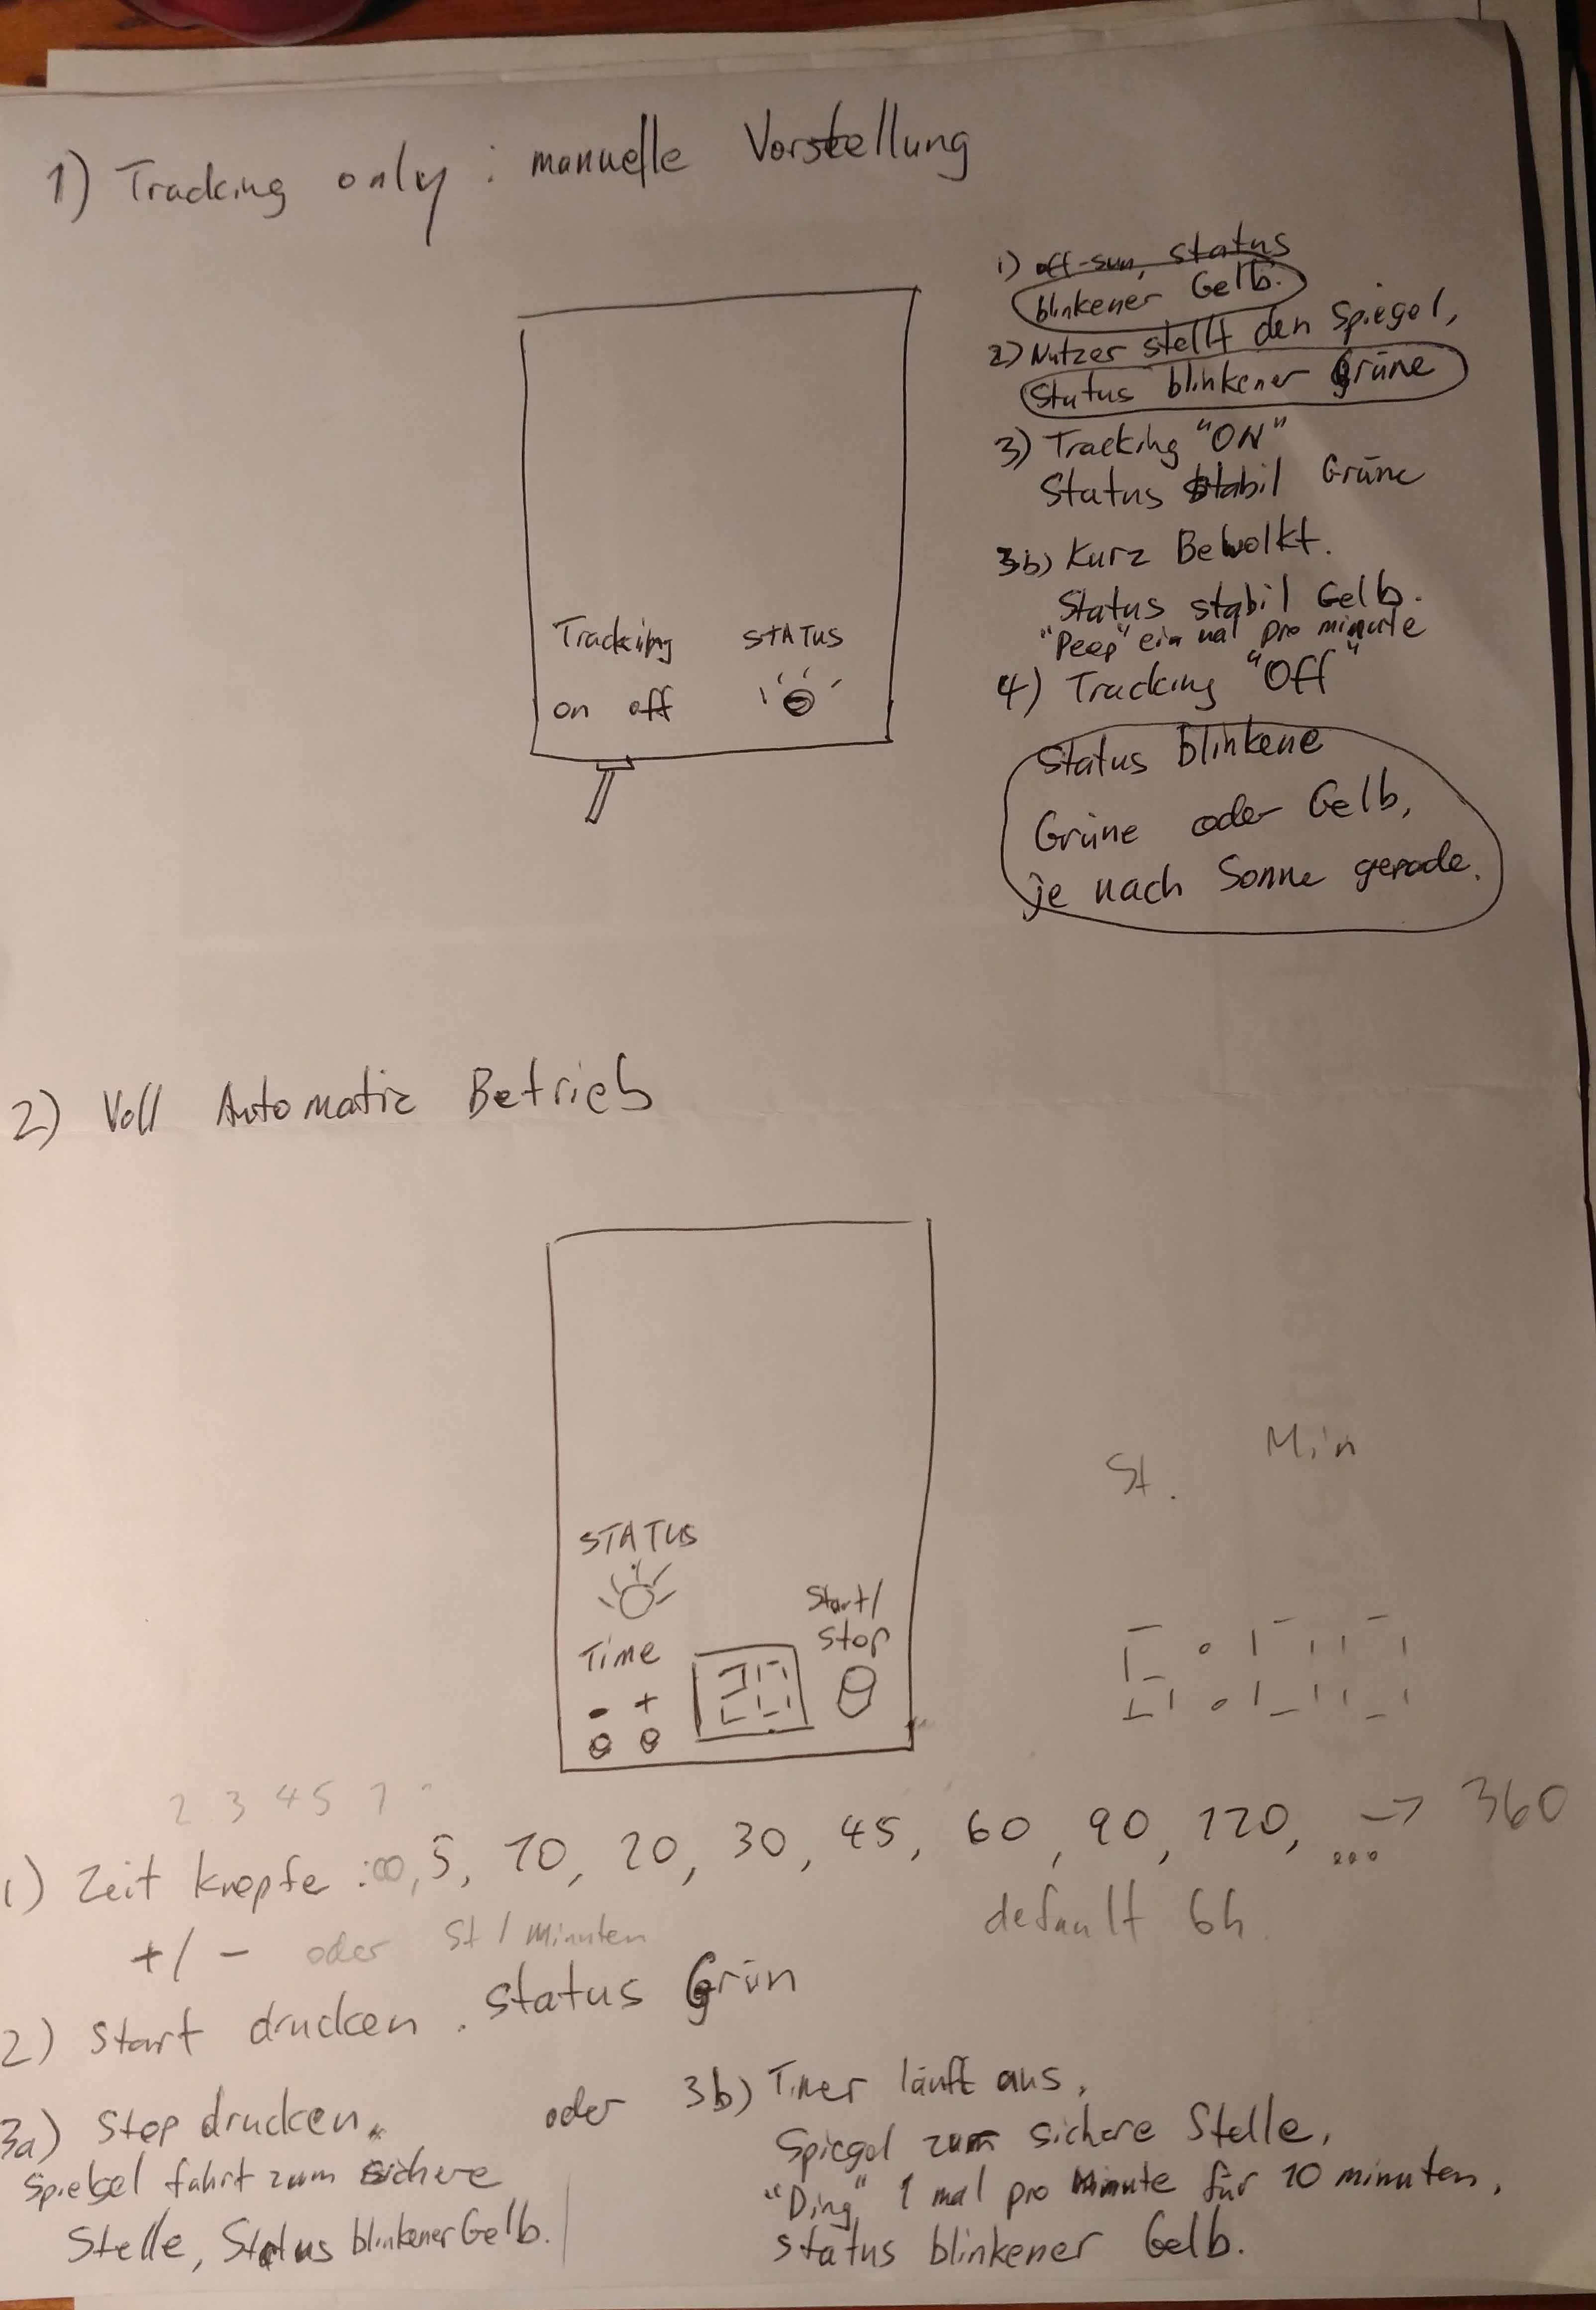 1) Tracking only : manuelle Vorstellung
1) off-sun, status
blinkener Gelb.
2) Nutzer stellt den Spiegel,
Status blinkener Grüne
3) Tracking "ON"
Status stabil Grüne
3b) Kurz Bewolkt.
Status stabil Gelb.
"Peep" ein mal pro minute
4) Tracking "Off"
Status blinkene
Grüne oder Gelb,
je nach Sonne gerade.
Tracking STATUS
on off
2) Voll Automatic Betrieb
St. Min
STATUS
Start/
Stop
Time
- +
20
2 3 4 5 7
1) Zeit knopfe : ∞, 5, 10, 20, 30, 45, 60, 90, 120, ... → 360
+/- oder St / Minuten
default 6h
2) Start drucken. Status Grün
3a) Stop drucken.
Spiegel fahrt zum sichere
Stelle, Status blinkener Gelb.
oder
3b) Timer läuft aus,
Spiegel zum sichere Stelle,
"Ding" 1 mal pro Minute für 10 minuten,
status blinkener Gelb.